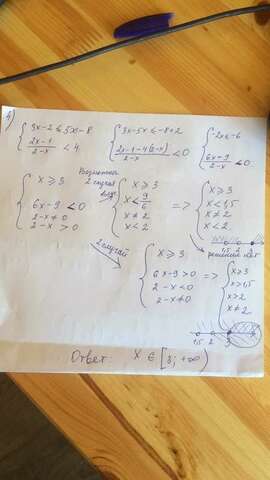 4)
{ 3x-2 ≤ 5x-8
{ (2x-1)/(2-x) < 4
{ 3x-5x ≤ -8+2
{ (2x-1-4(2-x))/(2-x) < 0
{ -2x ≤ -6
{ (6x-9)/(2-x) < 0
2 случая
{ x ≥ 3
{ 6x-9 < 0
{ 2-x ≠ 0
{ 2-x > 0
{ x ≥ 3
{ x < 9/6
{ x ≠ 2
{ x < 2
=>
{ x ≥ 3
{ x < 1,5
{ x ≠ 2
{ x < 2
1,5 2 3
решений нет
2 случай
{ x ≥ 3
{ 6x-9 > 0
{ 2-x < 0
{ 2-x ≠ 0
=>
{ x ≥ 3
{ x > 1,5
{ x > 2
{ x ≠ 2
1,5 2 3
Ответ: x ∈ [3; +∞)